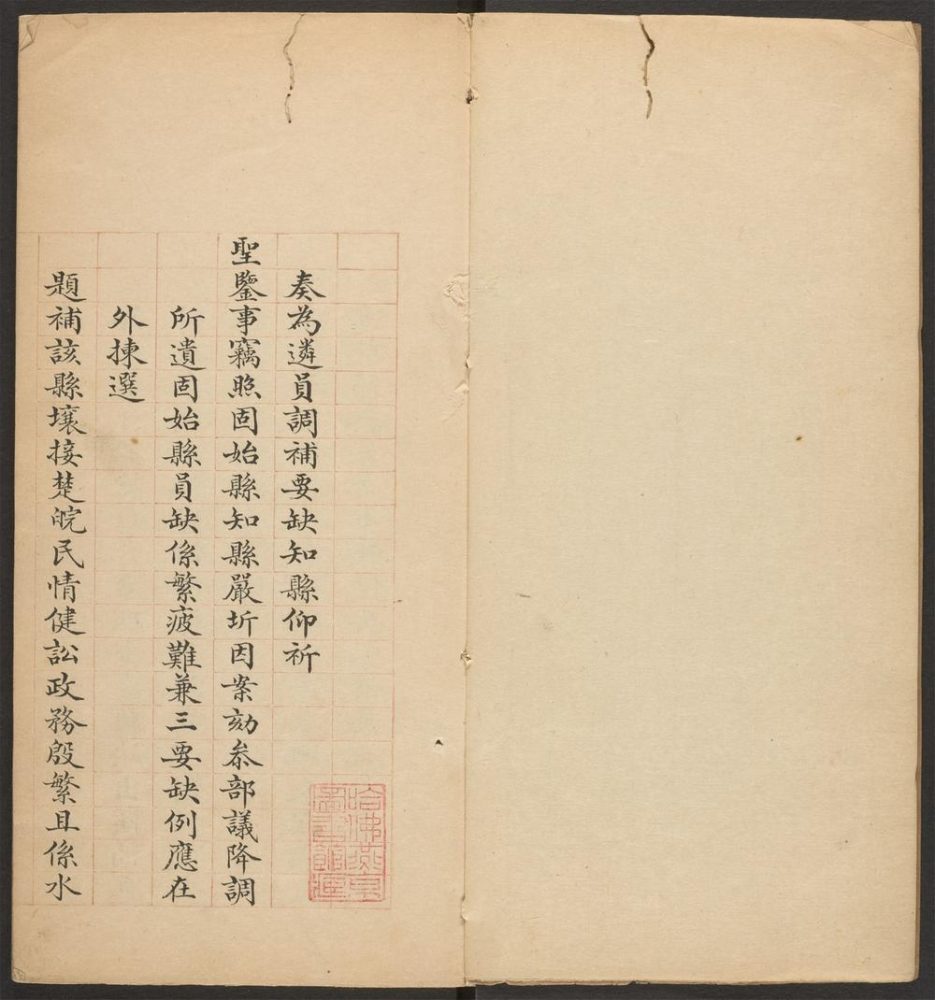 奏為遴員調補要缺知縣仰祈
聖鑒事竊照固始縣知縣嚴圻因案劾叅部議降調
所遺固始縣員缺係繁疲難兼三要缺例應在
外揀選
題補該縣壤接楚皖民情健訟政務殷繁且係水
哈佛燕京
圖書館